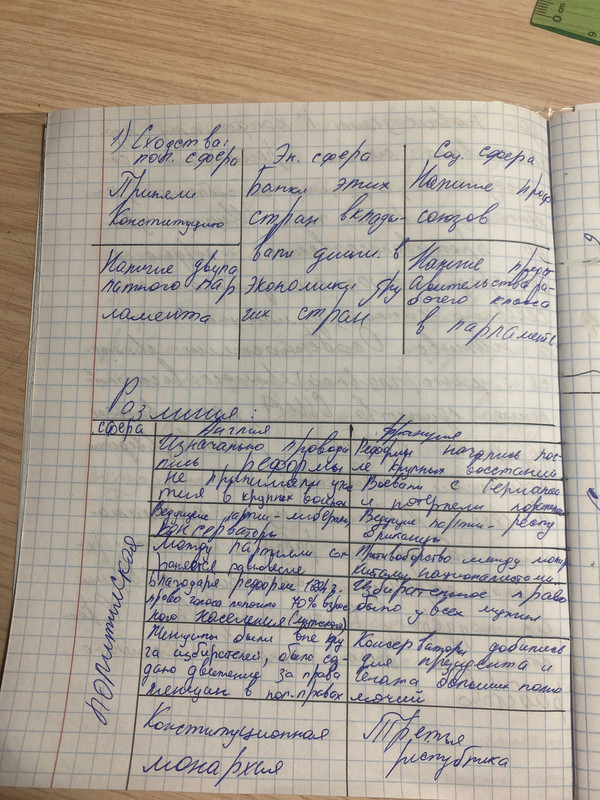 1) Сходства:
пол. сфера
Эк. сфера
Соц. сфера
Приняли
Конституцию
Банки этих
стран вклады-
вали деньги в
экономику дру
гих стран
Наличие проф
союзов
Наличие двупа
латного пар
ламента
Наличие предс
авительства ра-
бочего класса
в парламенте
Различия:
сфера
Англия
Франция
политическая
Изначально проводи
лись реформы
Реформы начались пос-
ле крупных восстаний
Не принимали учас
тия в крупных войнах
Воевали с Германией
и потерпели поражение
Ведущие партии - либералы,
консерваторы
Ведущие партии - респу
бликанцы
Между партиями сох
раняется равновесие
Противоборство между монар
хистами, националистами.
Благодаря реформе 1884 г.
право голоса получило 70% взрос
лого населения (мужского)
Избирательное право
было у всех мужчин
Женщины были вне кру
га избирателей, было со-
здано движение за права
женщин в пол. правах
Консерваторы добились
для президента и
сената больших полно
мочий
Конституционная
монархия
Третья
республика
0 cm